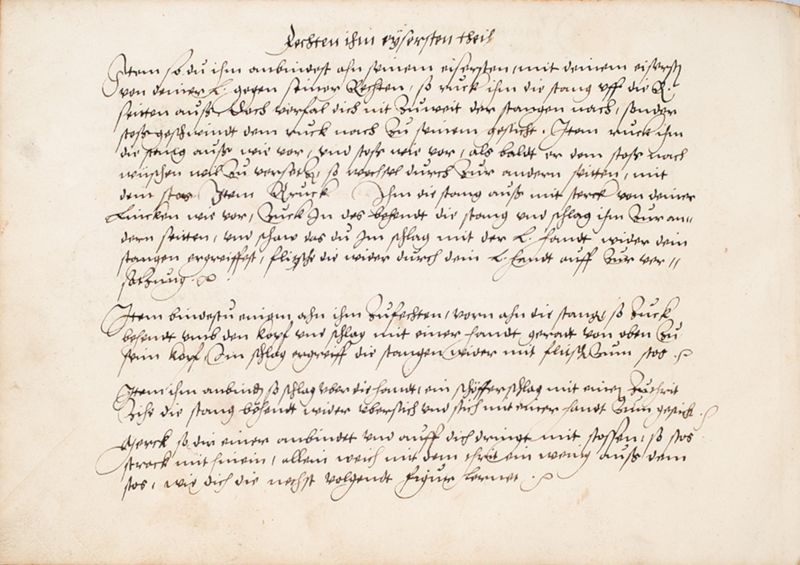 Fechten ihm eÿsersten theil
Item so du ihm anbindest ahn seinem eisersten, mit deinem eisersten
von deiner L. gegen seiner Rechten, so ruck ihm die stang vff die R.
seitten auß. Doch verfal dich nit zuweit der stangen nach, sonder
stoß geschwindt dem ruck nach zu seinem gesicht. Item ruck ihm
die stang auß wie vor, vnd stoß wie vor, als baldt er dem stoß nach
wüschen will zu versetzen, so wechsel durch zur andern seitten, mit
dem stos Item Ruck ihm die stang auß mit sterck von deiner
Lincken wie vor, zuck In des behendt die stang vnd schlag ihm zur an-
dern seitten, vnd schaw das du Im schlag mit der L. handt wider dein
stangen ergreiffest, die wider durch dein L. handt auff zur ver-
satzung.
Item bindestu einem ahn ihm zufechten, vorn ahn die stang, so zuck
behendt vmb den kopf vnd schlag mit einer handt geradt von oben zu
seim kopf, Im schlag ergreiff die stangen wider mit fleiß zum stos.
Item ihm anbindt so schlag vber die handt, ein schöfferschlag mit einem zuchrit
zihe die stang behendt wider vbersich vnd stich mit einer handt zum gesicht.
Merck so dir einer anbindet vnd auff dich dringt mit stossen, so stos
streck mit hinein, allein weich mit dem ein wenig auß dem
stos, wie dich die nechst volgendt figur lernet.